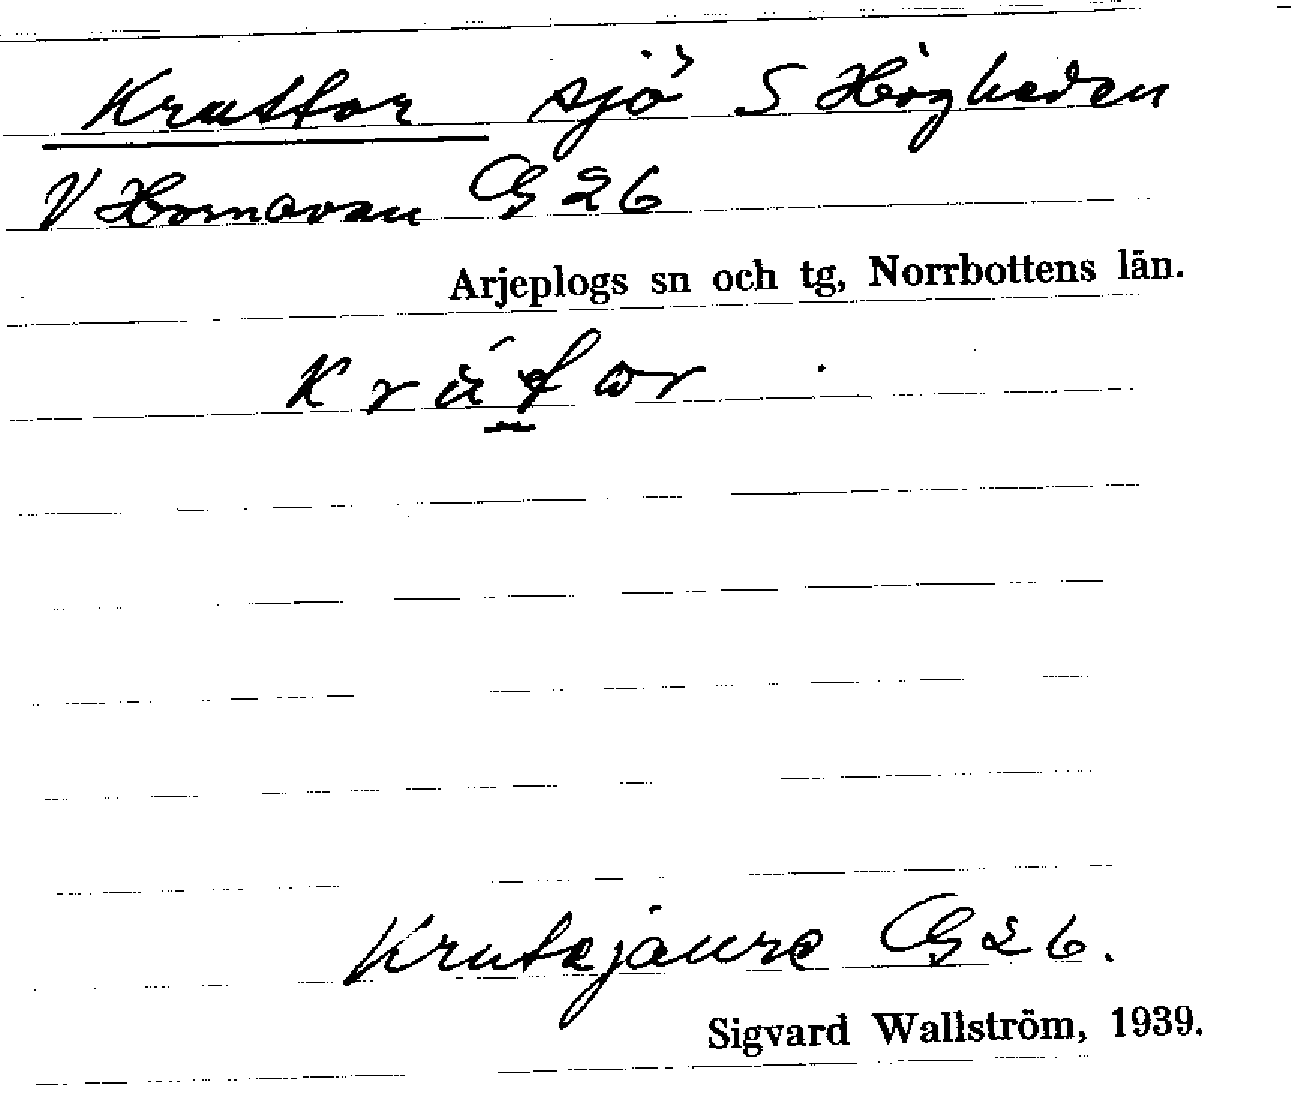 Kruttor sjö S Högheden
V Hornavan G 26
Arjeplogs sn och tg, Norrbottens län.
Krutejaure G 26.
Sigvard Wallström, 1939.